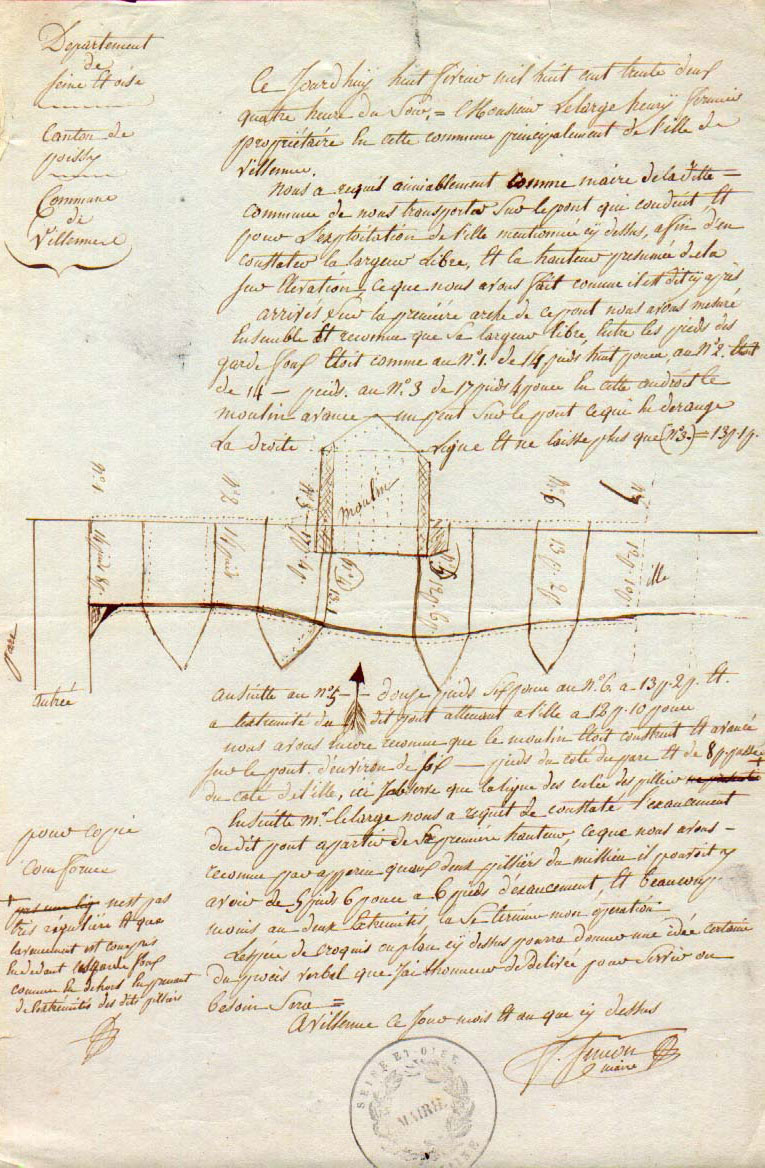 Département
de
Seine et oise
Canton de
poissy
Commune
de
Villennes
Ce Jourdhuy huit fevrier mil huit cent trente deux
quatre heure du Soir, = Monsieur Lelarge henry
propriétaire En cette commune principalement de l'ille de
Villennes.
Nous a requis amiablement comme maire de la ditte =
commune de nous transporter Sur le pont qui conduit Et
pour L'exploitation de l'ille mentionnée cy dessus, afin d'en
constater la largeur Libre, Et la hauteur presumée de la
Sur Elévation, ce que nous avons fait comme il est dit cy après
arrivés Sur la première arche de ce pont nous avons mesuré
Ensemble Et reconnu que Sa largeur libre, Entre les pieds des
garde foux Etoit comme au N°. 1. de 14 pieds huit pouce, au N°. 2.
de 14 – pieds. au N°. 3 de 17 pieds 4 pouce En cette androit le
moulin avance un peut Sur le pont ce qui en derange
La droite Ligne Et ne laisse plus que (N° 3.) = 13 p. 1 p.
N° 1
N° 2
N° 3
moulin
N° 6
7
14 pieds 8 p
14 pieds
17 p 4 p
13. 1
N° 5
12 p. 6 p.
13 p. 2 p.
12 p. 10 p.
ille
parc
Entrée
Ensuitte au N° 5 – douze pieds Six pouce au N° 6. a 13 p. 2 p. Et
a Lextremité du dit pont attenant a l'ille a 12 p. 10 pouce
nous avons Encore reconnu que le moulin Etoit construit Et avancé
Sur le pont, d'environ de Six — pieds du coté du parc Et de 8 p.
du coté de l'ille, ici J'observe que la ligne des culée des pilliers
Ensuitte mr. lelarge nous a requit de constaté l'exaucement
du dit pont a partir de Sa première hauteur, ce que nous avons –
reconnu par apperçu quaux deux pilliers du millieu il pouroit y
avoir de 5 pieds 6 pouce a 6 pieds d'exaucement, Et beaucoup
moins au deux Extremités la Se termine mon opération
Lespèce de croquis ou plan cy dessus pourra donner une idée certaine
du proces verbal que J'ai lhonneur de délivré pour Servir au
besoin Sera =
A villennes ce Jour mois Et an que cy dessus
Simon
maire
pour copie
Conforme
+ nest pas
très régulière Et que
lavencement est compris
En dedant les garde foux
comme En dehors En prenant
de l'extrémités des dit pilliers
SEINE ET OISE
MAIRIE